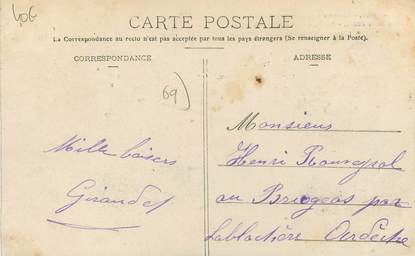 CARTE POSTALE
La Correspondance au recto n'est pas acceptée par tous les pays étrangers (Se renseigner à la Poste).
CORRESPONDANCE
ADRESSE
69)
Mille baisers
Giraudet
Monsieur
Henri Rouveyrol
au par
Lablachère Ardèche